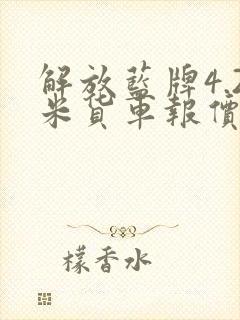 解放藍牌4.2
米貨車報價
檬香水